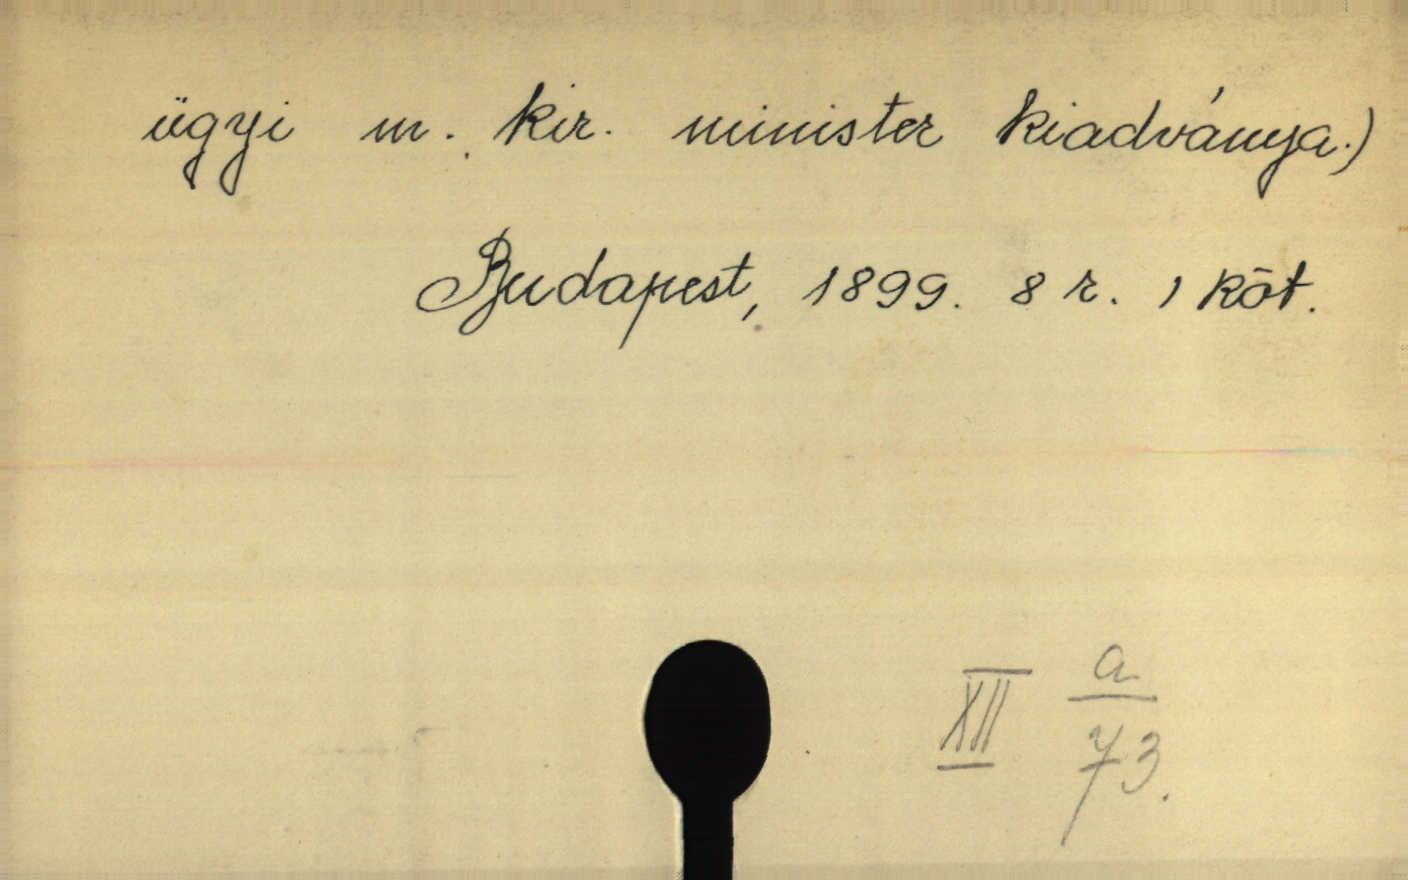 ügyi m. kir. minister kiadványa.)
Budapest, 1899. 8 r. 1 köt.
XII a/73.